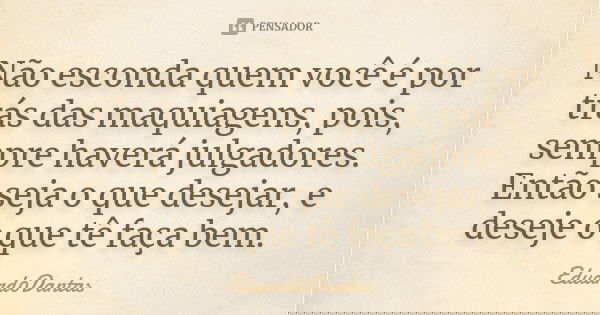 PENSADOR
Não esconda quem você é por
trás das maquiagens, pois,
sempre haverá julgadores.
Então seja o que desejar, e
deseje o que tê faça bem.
EduardoDantas